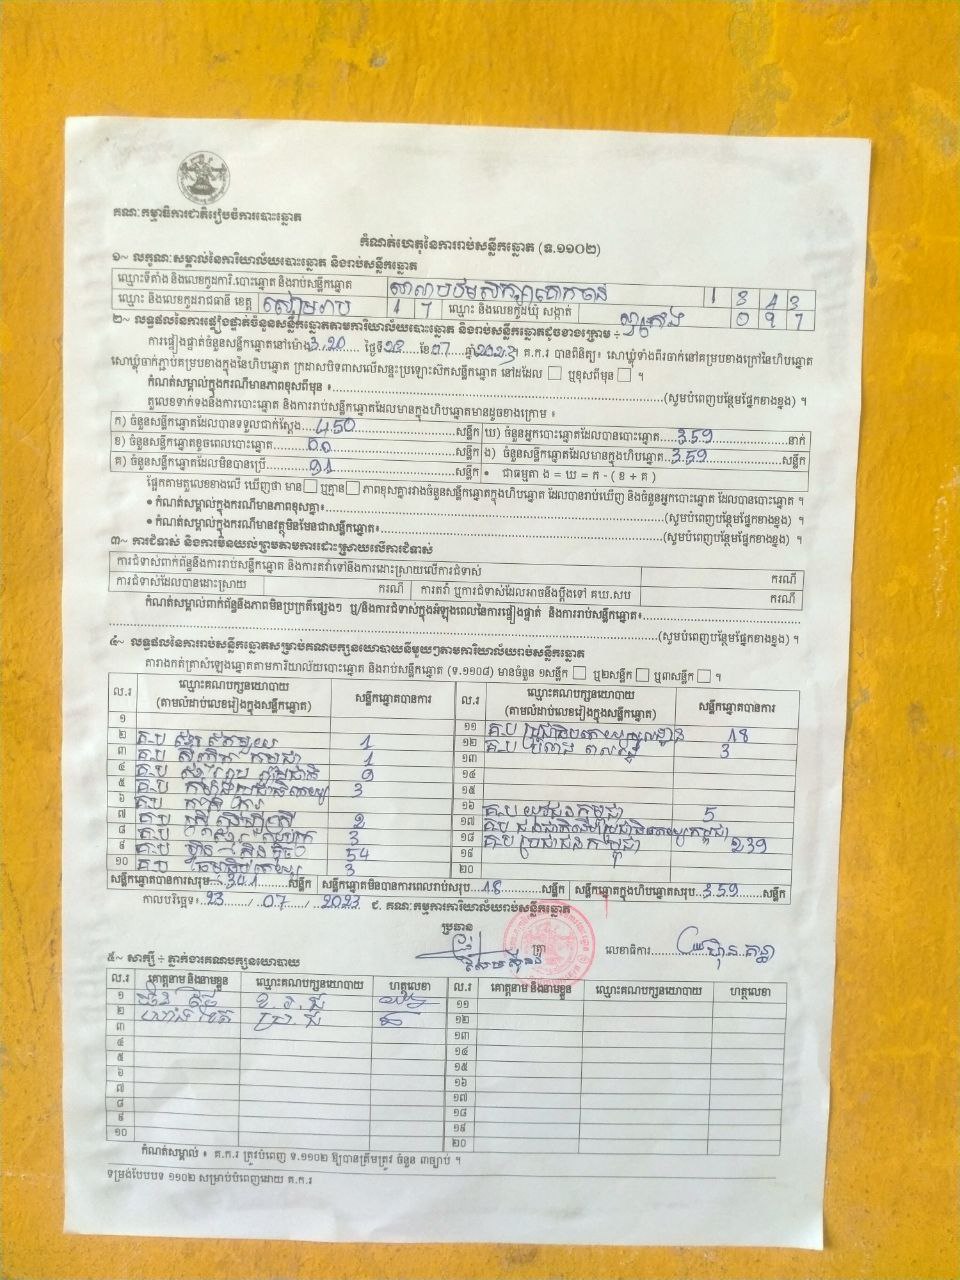 គណៈកម្មាធិការជាតិរៀបចំការបោះឆ្នោត
កំណត់ហេតុនៃការរាប់សន្លឹកឆ្នោត (ទ.១១០២)
១~ លក្ខណៈសម្គាល់នៃការិយាល័យបោះឆ្នោត និងរាប់សន្លឹកឆ្នោត
ឈ្មោះទីតាំង និងលេខកូដការិ.បោះឆ្នោត និងរាប់សន្លឹកឆ្នោត សាលាបឋមសិក្សាគោកចាន់ 1 3 4 3
ឈ្មោះ និងលេខកូដរាជធានី ខេត្ត សៀមរាប 1 7 ឈ្មោះ និងលេខកូដឃុំ សង្កាត់ 0 9 7
២~ លទ្ធផលនៃការផ្ទៀងផ្ទាត់ចំនួនសន្លឹកឆ្នោតតាមការិយាល័យបោះឆ្នោត និងរាប់សន្លឹកឆ្នោតដូចខាងក្រោម ÷
ការផ្ទៀងផ្ទាត់ចំនួនសន្លឹកឆ្នោតនៅម៉ោង 3:20 ថ្ងៃទី 23 ខែ 07 ឆ្នាំ 2023។ គ.ក.រ បានពិនិត្យ៖ សោឃ្លុំទាំងពីរចាក់នៅគម្របខាងក្រៅនៃហិបឆ្នោត
សោឃ្លុំចាក់ភ្ជាប់គម្របខាងក្នុងនៃហិបឆ្នោត ក្រដាសបិទពាសលើសន្ទះប្រឡោះស៊កសន្លឹកឆ្នោត នៅដដែល ☐ ឬខុសពីមុន ☐ ។
កំណត់សម្គាល់ក្នុងករណីមានភាពខុសពីមុន ៖ (សូមបំពេញបន្ថែមផ្នែកខាងខ្នង) ។
តួលេខទាក់ទងនឹងការបោះឆ្នោត និងការរាប់សន្លឹកឆ្នោតដែលមានក្នុងហិបឆ្នោតមានដូចខាងក្រោម ៖
ក) ចំនួនសន្លឹកឆ្នោតដែលបានទទួលជាក់ស្តែង 450 សន្លឹក ឃ) ចំនួនអ្នកបោះឆ្នោតដែលបានបោះឆ្នោត 359 នាក់
ខ) ចំនួនសន្លឹកឆ្នោតខូចពេលបោះឆ្នោត 00 សន្លឹក ង) ចំនួនសន្លឹកឆ្នោតដែលមានក្នុងហិបឆ្នោត 359 សន្លឹក
គ) ចំនួនសន្លឹកឆ្នោតដែលមិនបានប្រើ 91 សន្លឹក • ជាធម្មតា ង = ឃ = ក - ( ខ + គ )
ផ្អែកតាមតួលេខខាងលើ ឃើញថា មាន ☐ ឬគ្មាន ☐ ភាពខុសគ្នារវាងចំនួនសន្លឹកឆ្នោតក្នុងហិបឆ្នោត ដែលបានរាប់ឃើញ និងចំនួនអ្នកបោះឆ្នោត ដែលបានបោះឆ្នោត ។
• កំណត់សម្គាល់ក្នុងករណីមានភាពខុសគ្នា៖ (សូមបំពេញបន្ថែមផ្នែកខាងខ្នង) ។
• កំណត់សម្គាល់ក្នុងករណីមានវត្ថុមិនមែនជាសន្លឹកឆ្នោត៖ (សូមបំពេញបន្ថែមផ្នែកខាងខ្នង) ។
៣~ ការជំទាស់ និងការមិនយល់ព្រមតាមការដោះស្រាយលើការជំទាស់
ការជំទាស់ពាក់ព័ន្ធនឹងការរាប់សន្លឹកឆ្នោត និងការតវ៉ាទៅនឹងការដោះស្រាយលើការជំទាស់ ករណី
ការជំទាស់ដែលបានដោះស្រាយ ករណី ការតវ៉ា ឬការជំទាស់ដែលអាចនឹងប្តឹងទៅ គឃ.សប ករណី
កំណត់សម្គាល់ពាក់ព័ន្ធនឹងភាពមិនប្រក្រតីផ្សេងៗ ឬ/និងការជំទាស់ក្នុងអំឡុងពេលនៃការផ្ទៀងផ្ទាត់ និងការរាប់សន្លឹកឆ្នោត៖
(សូមបំពេញបន្ថែមផ្នែកខាងខ្នង) ។
៤~ លទ្ធផលនៃការរាប់សន្លឹកឆ្នោតសម្រាប់គណបក្សនយោបាយនីមួយៗតាមការិយាល័យរាប់សន្លឹកឆ្នោត
តារាងកត់ត្រាសំឡេងឆ្នោតតាមការិយាល័យបោះឆ្នោត និងរាប់សន្លឹកឆ្នោត (ទ.១១០៨) មានចំនួន ១សន្លឹក ☐ ឬ២សន្លឹក ☐ ឬ៣សន្លឹក ☐ ។
ល.រ ឈ្មោះគណបក្សនយោបាយ (តាមលំដាប់លេខរៀងក្នុងសន្លឹកឆ្នោត) សន្លឹកឆ្នោតបានការ ល.រ ឈ្មោះគណបក្សនយោបាយ (តាមលំដាប់លេខរៀងក្នុងសន្លឹកឆ្នោត) សន្លឹកឆ្នោតបានការ
១ ១១ 18
២ គ-ប 1 ១២ គ-ប 3
៣ គ-ប 1 ១៣
៤ គ-ប 0 ១៤
៥ គ-ប 3 ១៥
៦ គ-ប ១៦ គ-ប យុវជនកម្ពុជា 5
៧ គ-ប 2 ១៧
៨ គ-ប 3 ១៨ គ-ប ប្រជាជនកម្ពុជា 239
៩ គ-ប 54 ១៩
១០ គ-ប 3 ២០
សន្លឹកឆ្នោតបានការសរុប 341 សន្លឹក សន្លឹកឆ្នោតមិនបានការពេលរាប់សរុប 18 សន្លឹក សន្លឹកឆ្នោតក្នុងហិបឆ្នោតសរុប 359 សន្លឹក
កាលបរិច្ឆេទ៖ 23 / 07 / 2023 ៩. គណៈកម្មការការិយាល័យរាប់សន្លឹកឆ្នោត
ប្រធាន
ត្រា លេខាធិការ
៥~ សាក្សី ÷ ភ្នាក់ងារគណបក្សនយោបាយ
ល.រ គោត្តនាម និងនាមខ្លួន ឈ្មោះគណបក្សនយោបាយ ហត្ថលេខា ល.រ គោត្តនាម និងនាមខ្លួន ឈ្មោះគណបក្សនយោបាយ ហត្ថលេខា
១ ១១
២ ១២
៣ ១៣
៤ ១៤
៥ ១៥
៦ ១៦
៧ ១៧
៨ ១៨
៩ ១៩
១០ ២០
កំណត់សម្គាល់ ៖ គ.ក.រ ត្រូវបំពេញ ទ.១១០២ ឱ្យបានត្រឹមត្រូវ ចំនួន ៣ច្បាប់ ។
ទម្រង់បែបបទ ១១០២ សម្រាប់បំពេញដោយ គ.ក.រ